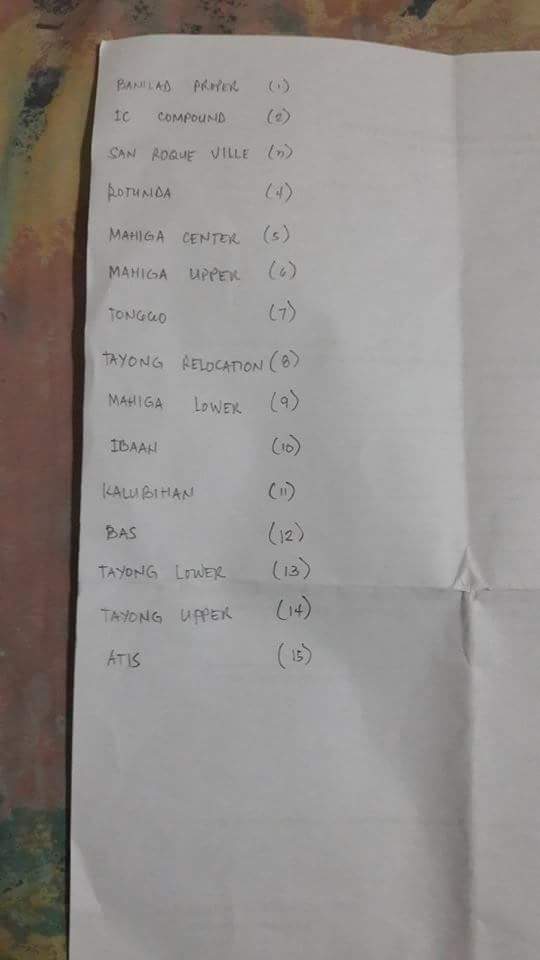 BANILAD PROPER (1)
IC COMPOUND (2)
SAN ROQUE VILLE (3)
ROTUNDA (4)
MAHIGA CENTER (5)
MAHIGA UPPER (6)
TONGGO (7)
TAYONG RELOCATION (8)
MAHIGA LOWER (9)
IBAAN (10)
KALUBIHAN (11)
BAS (12)
TAYONG LOWER (13)
TAYONG UPPER (14)
ATIS (15)